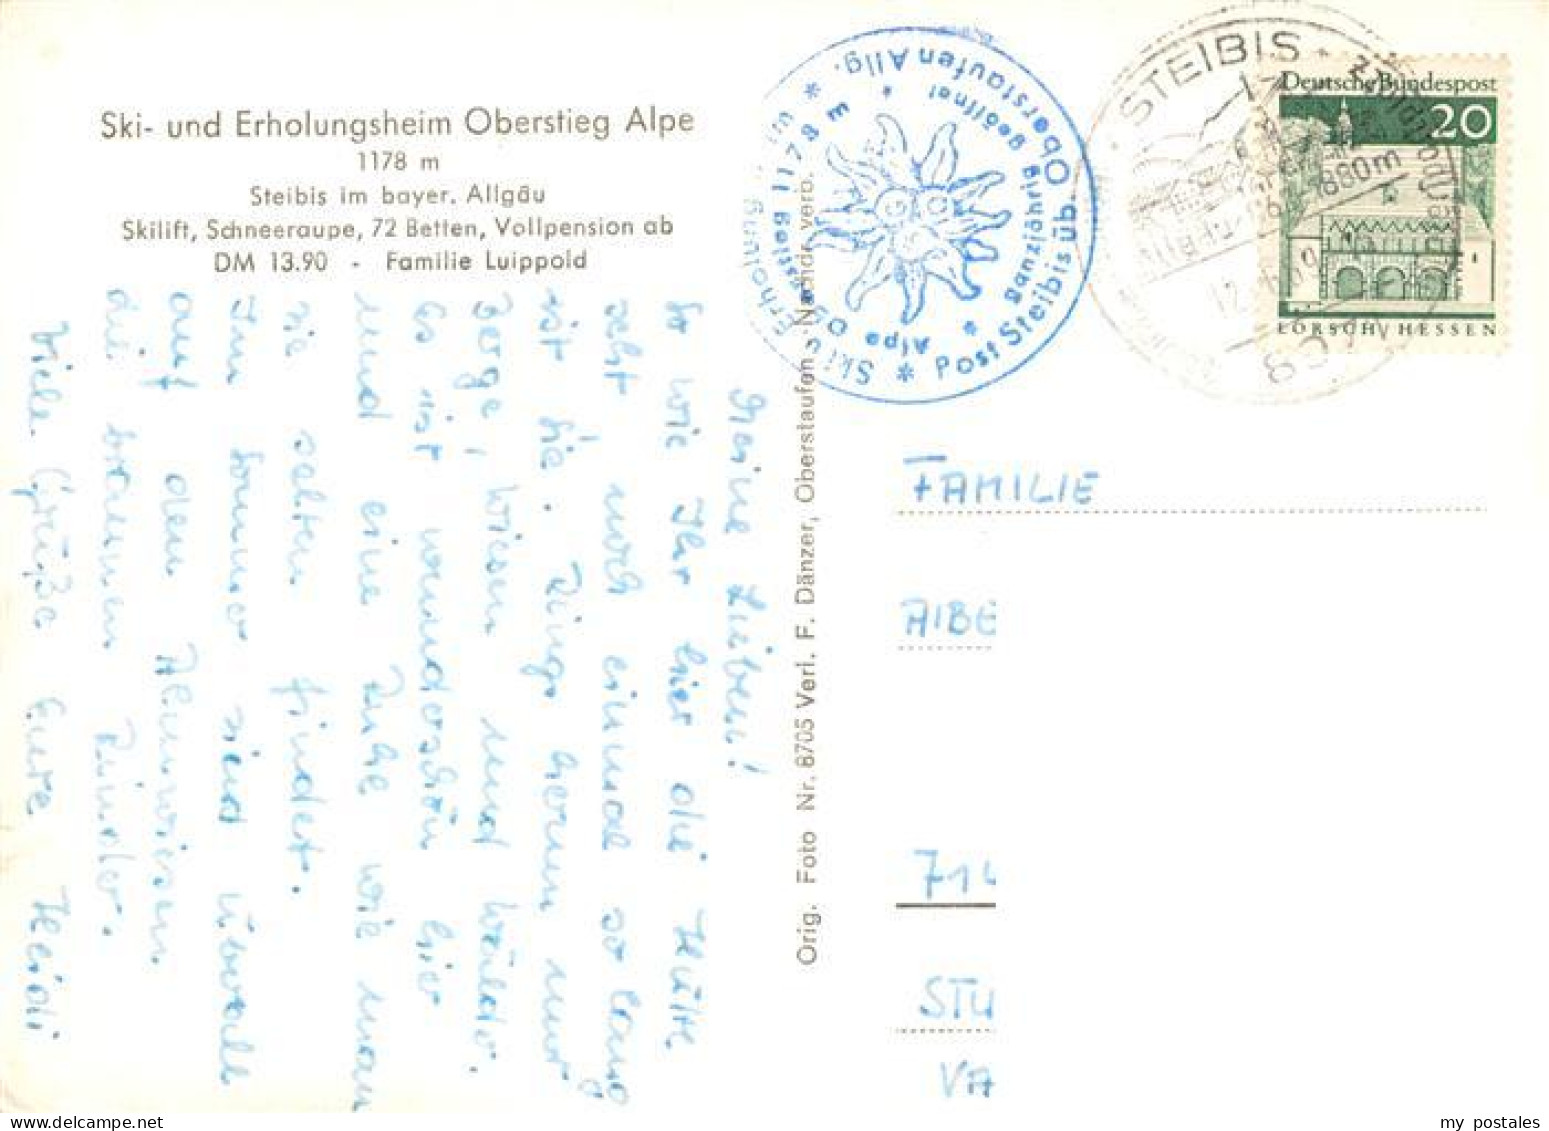 Ski- und Erholungsheim Oberstieg Alpe
1178 m
Steibis im bayer. Allgäu
Skilift, Schneeraupe, 72 Betten, Vollpension ab
DM 13.90 - Familie Luippold
Meine Lieben!
So wie Ihr hier die Hütte
seht noch einmal so lang
ist sie. Rings herum nur
Berge, Wiesen und Wälder.
Es ist wunderschön hier
und eine Ruhe wie man
sie selten findet.
Im Sommer sind überall
auf den Almwiesen
die braunen Rinder.
Viele Grüße Eure Heidi
Orig. Foto Nr. 8705 Verl. F. Dänzer, Oberstaufen, Nachdr. verb.
Ski u. Erholungsheim
Oberstieg 1178 m
Alpe * ganzjährig geöffnet *
* Post Steibis üb. Oberstaufen Allg. *
STEIBIS
860m
Deutsche Bundespost
20
LORSCH HESSEN
FAMILIE
AIBE
714
STU
VA
my postales